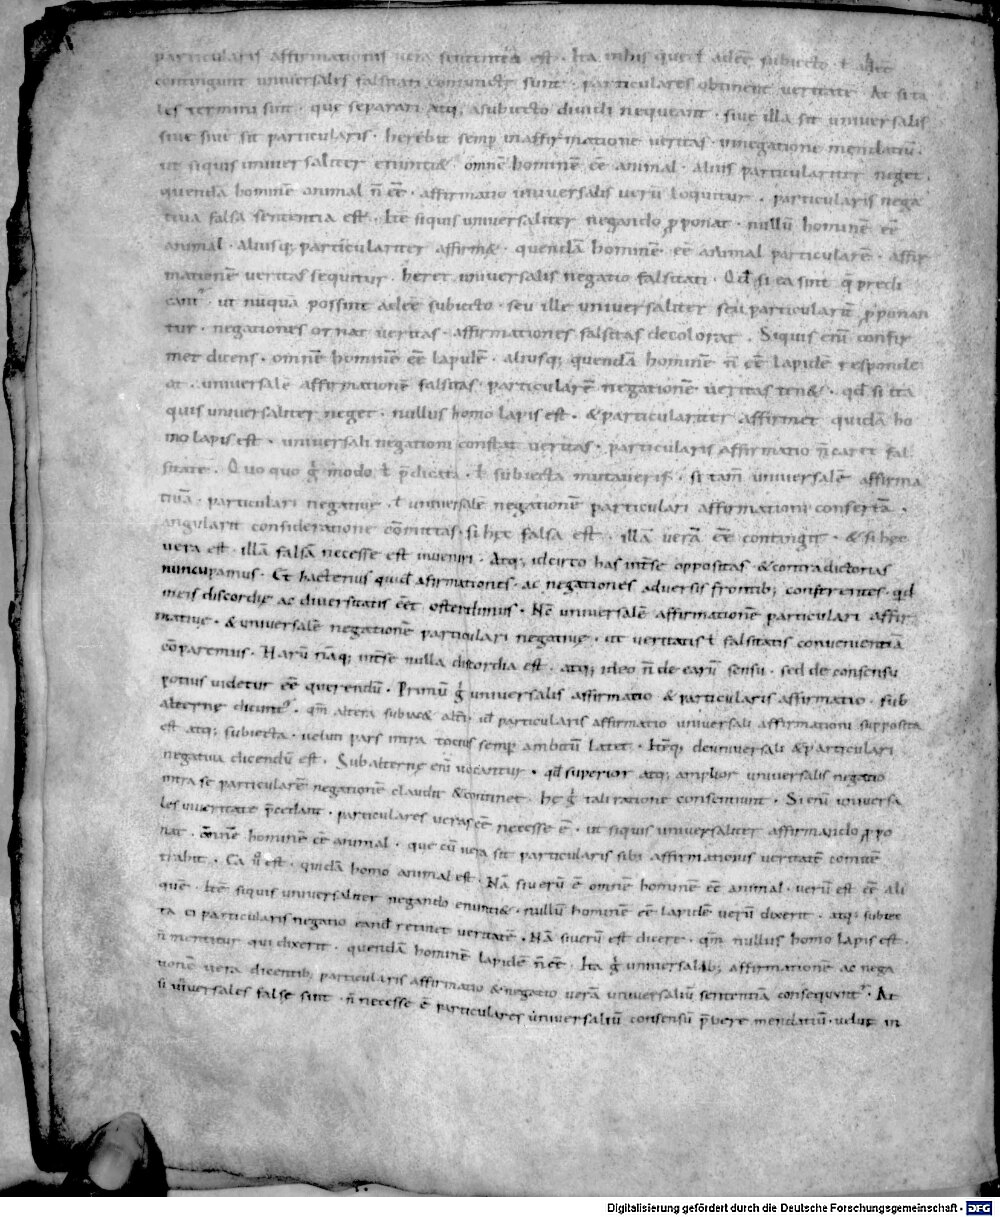 particularis affirmationis uera sententia est. Ita in his que ł adeē subiecto ł abēē
contingunt uniuersales falsitati coniuncte sunt. particulares obtinent ueritatē. At si ta
les termini sint. que separari atq; a subiecto diuidi nequeant. siue illa sit uniuersalis
siue sit particularis. herebit semp in affirmatione ueritas. in negatione mendatiū.
ut siquis uniuersaliter enunti&. omnē hominē eē animal. alius particulariter neget.
quendā hominē animal n̄ eē. affirmatio uniuersalis uerū loquitur. particularis nega
tiua falsa sententia est. Itē siquis uniuersaliter negando p̄ponat. nullū hominē eē
animal. aliusq; particulariter affirm&. quendā hominē eē animal particularē. affir
mationē ueritas sequitur. heret uniuersalis negatio falsitati. Qd si ea sint q̄ predi
cant᷑. ut nūquā possint adeē subiecto. seu ille uniuersaliter seu particularit᷑ p̄ponan
tur. negationes ornat ueritas. affirmationes falsitas decolorat. Siquis eni᷑ confir
met dicens. omnē hominē eē lapidē. aliusq; quendā hominē n̄ eē lapidē responde
at. uniuersalē affirmationē falsitas. particularē negationē ueritas ten&. qd si ita
quis uniuersaliter neget. nullus homo lapis est. & particulariter affirmet quidā ho
mo lapis est. uniuersali negationi constat ueritas. particularis affirmatio n̄ caret fal
sitate. Quo quo g̊ modo ł p̄dicata. ł subiecta mutaueris. si tam̄ uniuersalē affirma
tiuā. particulari negatiuę. ł uniuersalē negationē particulari affirmationi consertā.
angulari consideratione cōmittas. si hęc falsa est. illā uerā eē contingit. & si hęc
uera est. illā falsā necesse est inueniri. Atq; idcirco has int̄se oppositas & contradictorias
nuncupamus. Et hactenus quid afirmationes. ac negationes aduersis frontib; conferentes. qd
meis discordię ac diuersitatis eēt ostendimus. Nē uniuersalē affirmationē particulari affir
matiuę. & uniuersalē negationē particulari negatiuę. ut ueritatis ł falsitatis conuenientiā
cōparemus. Harū nāq; int̄se nulla discordia est. atq; ideo n̄ de earū sensu. sed de consensu
potius uidetur eē querendū. Primū g̊ uniuersalis affirmatio & particularis affirmatio. sub
alternę dicunt᷑. qm̄ altera subiac& alt̄i. id particularis affirmatio uniuersali affirmationi supposita
est atq; subiecta. ueluti pars intra totius semp ambitū latet. Itēq; de uniuersali & particulari
negatiua dicendū est. Subalternę eni᷑ uocantur. qd superior atq; amplior uniuersalis negatio
intra se particularē negationē claudit & continet. hę g̊ tali ratione consentiunt. Si eni᷑ uniuersa
les in ueritate p̄cedant. particulares ueras eē necesse ē. ut siquis uniuersaliter affirmando p̄po
nat. omnē hominē eē animal. que cū uera sit particularis sibi affirmationis ueritatē conuē
trahit. Ea ū est. quidā homo animal est. Nā si uerū ē omnē hominē eē animal. uerū est eē ali
quē. Itē siquis uniuersaliter negando enunti&. nullū hominē eē lapidē uerū dixerit. atq; subiec
ta ei particularis negatio eandē retinet ueritatē. Nā si uerū est dicere. qm̄ nullus homo lapis est.
n̄ mentitur qui dixerit. quendā hominē lapidē n̄ eē. Ita g̊ uniuersalib; affirmationē ac nega
tionē uera dicentib; particularis affirmatio & negatio uerā uniuersaliū sententiā consequunt᷑. At
si uniuersales falsę sint. n̄ necesse ē particulares uniuersaliū consensū p̄bere mendatiū. uelut in
Digitalisierung gefördert durch die Deutsche Forschungsgemeinschaft - DFG